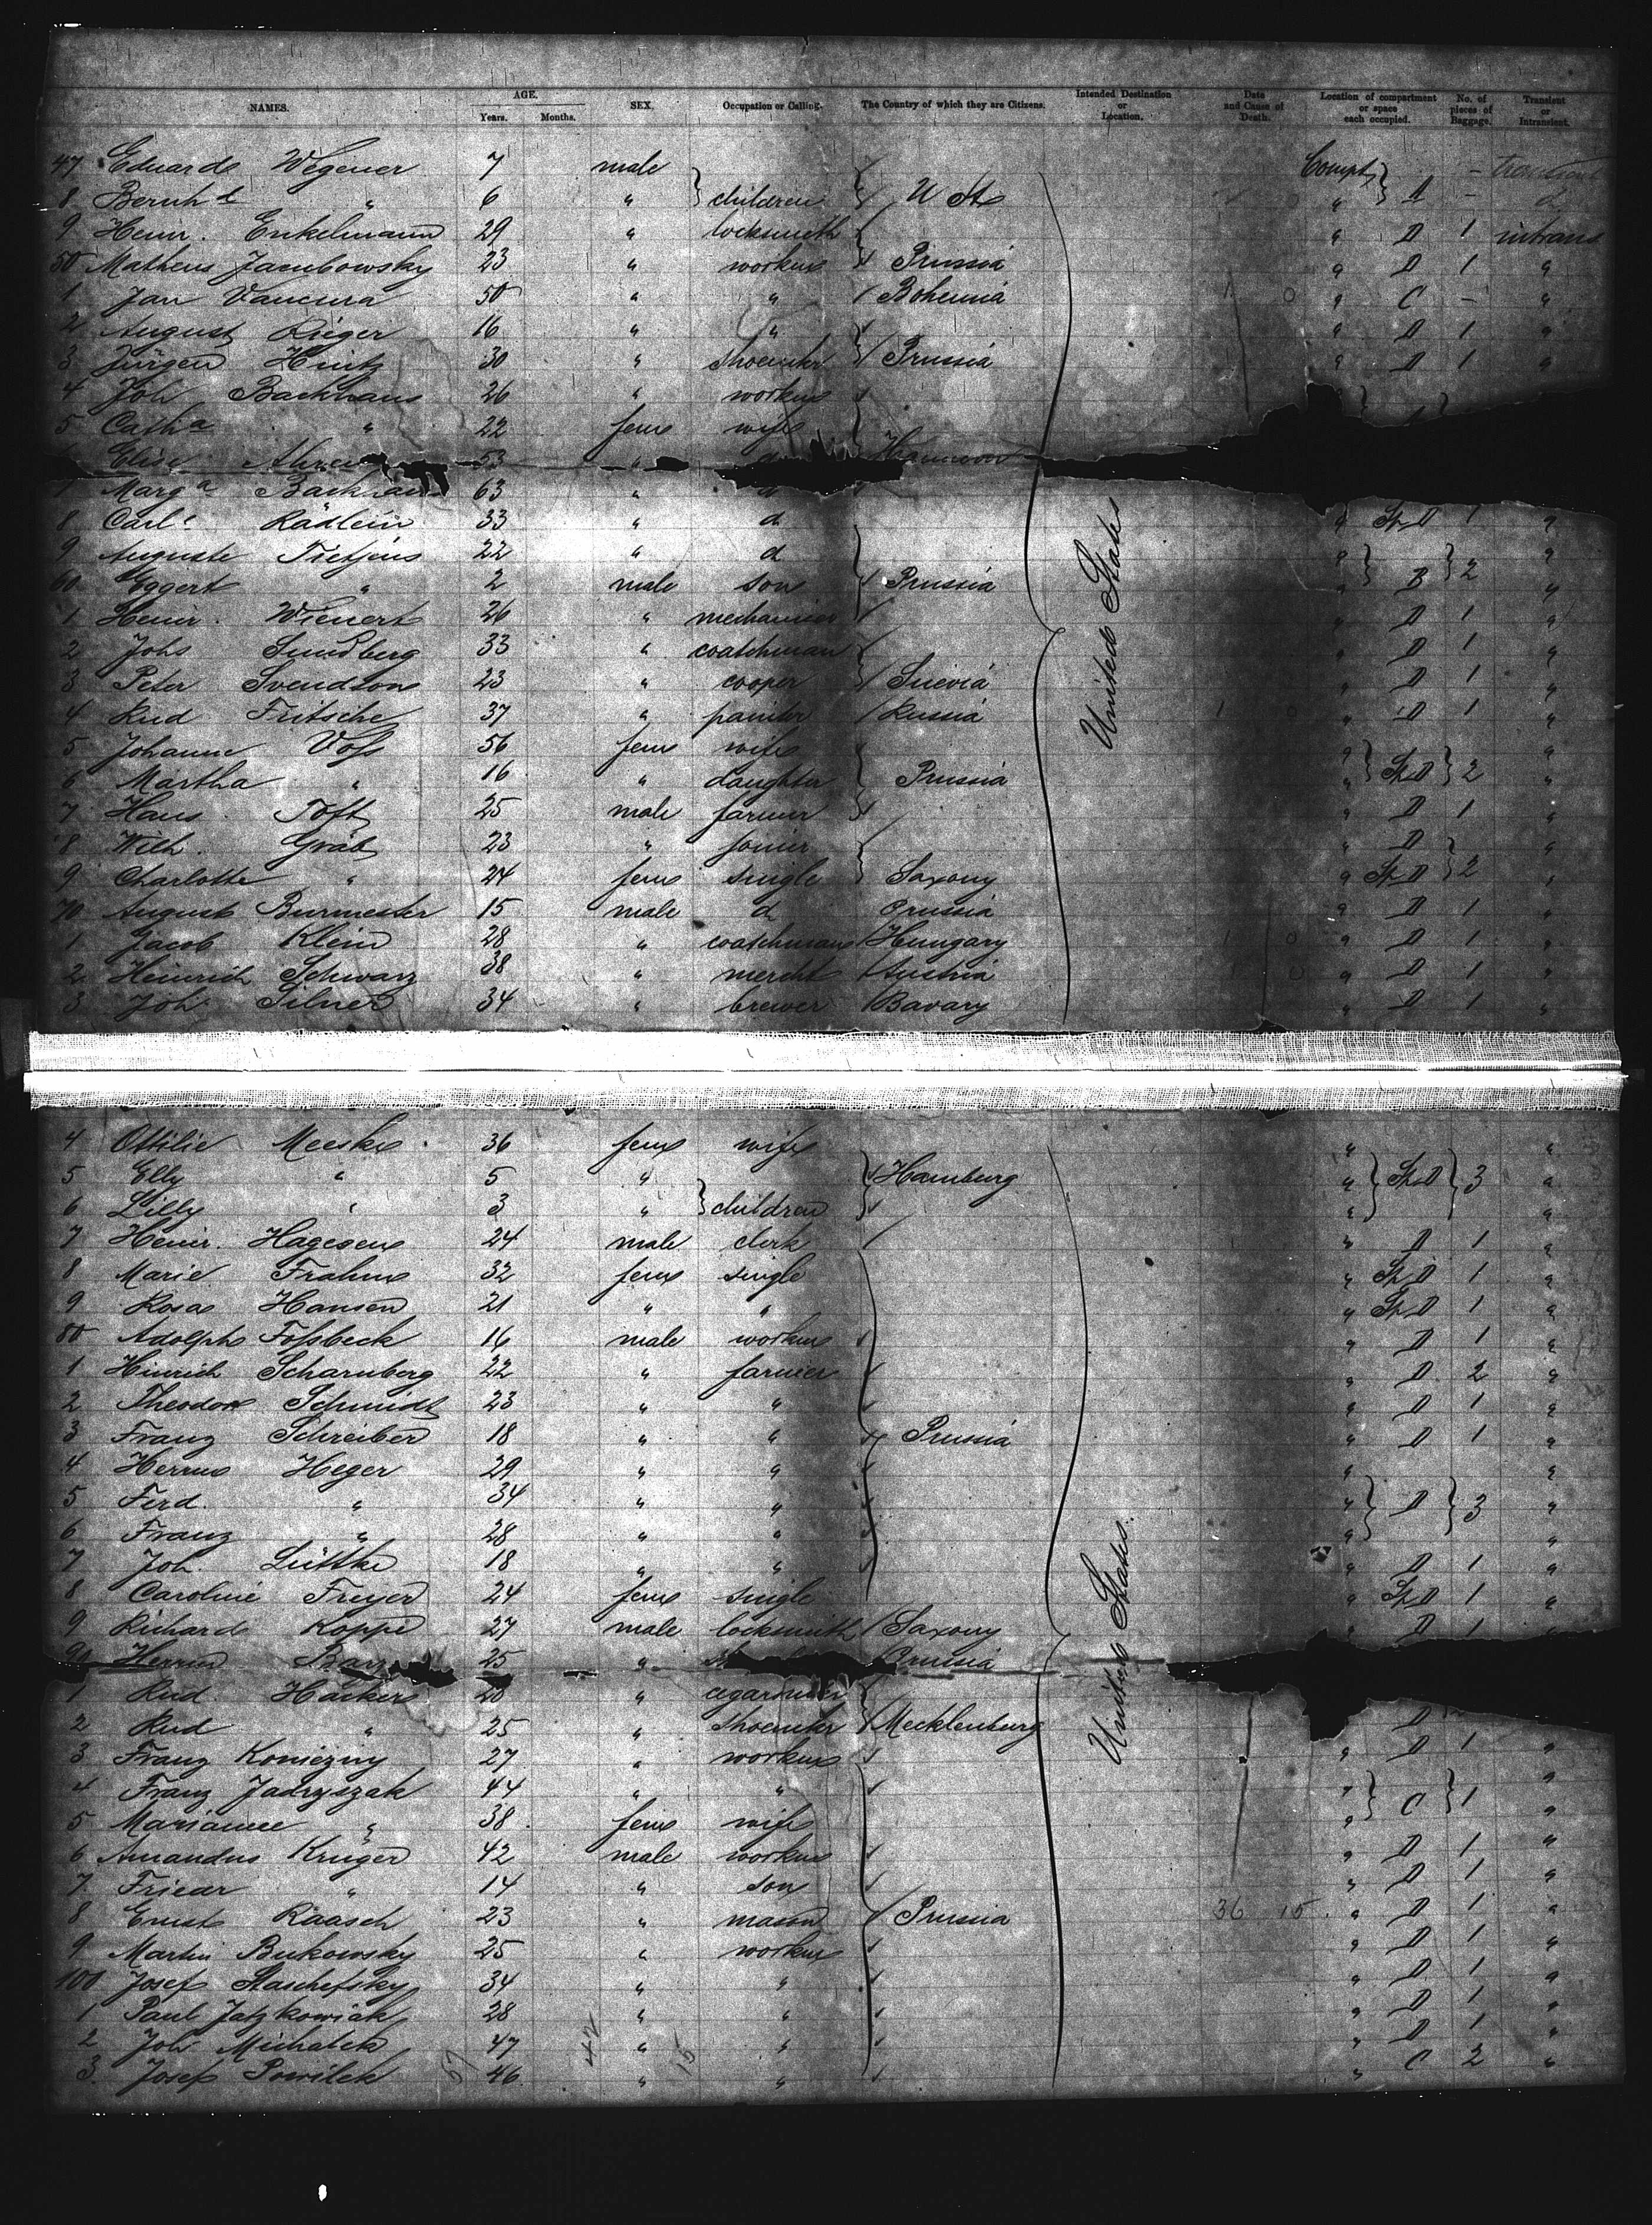 NAMES. AGE. SEX. Occupation or Calling. The Country of which they are Citizens. Intended Destination or Location. Date and Cause of Death. Location of compartment or space each occupied. No. of pieces of Baggage. Transient or Intransient.
Years. Months.
47 Eduard Wegener 7 male Compt - transient
8 Bernhd " 6 " children U St " D - d
9 Heinr. Enkelmann 29 " locksmith " D 1 intrans
50 Matheus Jacubowsky 23 " workm Prussia " D 1 "
1 Jan Vancura 50 " " Bohemia " C - "
2 August Rieger 16 " " " D 1 "
3 Jürgen Hintz 30 " shoemkr Prussia " D 1 "
4 Joh Backhaus 26 " workm
5 Catha " 22 fem wife
Elise 53 " d Hannover
7 Marga Backhaus 63 " d
8 Carle Rädlein 33 " d " St D 1 "
9 Auguste Tietjens 22 " d " "
60 Eggert " 2 male son Prussia " B 2 "
1 Heinr. Wienert 26 " mechanier " D 1 "
2 Johs Sundberg 33 " coatchman " D 1 "
3 Peter Svendson 23 " cooper Suevia " D 1 "
4 Rud Fritsche 37 " painter Russia " D 1 "
5 Johanne Voss 56 fem wife " "
6 Martha " 16 " daughter Prussia " St D 2 "
7 Hans Toft 25 male farmer " D 1 "
8 Wilh. Gräb 23 " joiner " D "
9 Charlotte " 24 fem single Saxony " St D 2 "
70 August Burmester 15 male d Prussia " D 1 "
1 Jacob Klein 28 " coatchman Hungary " D 1 "
2 Heinrich Schwarz 38 " mercht Austria " D 1 "
3 Joh Pilner 34 " brewer Bavary " D 1 "
United States
4 Ottilie Meeske 36 fem wife " "
5 Elly " 5 " Hamburg " St D 3 "
6 Lilly " 3 " children " "
7 Heinr. Hagesen 24 male clerk " D 1 "
8 Marie Frahm 32 fem single " St D 1 "
9 Rosa Hansen 21 " " " St D 1 "
80 Adolph Fossbeck 16 male workm " D 1 "
1 Hinrich Scharnberg 22 " farmer " D 2 "
2 Theodor Schmidt 23 " " " D 1 "
3 Franz Schreiber 18 " " Prussia " D 1 "
4 Herrm Heger 29 " " " "
5 Ferd. " 34 " " " D 3 "
6 Franz " 28 " " " "
7 Joh. Lüttke 18 " " " D 1 "
8 Caroline Freyer 24 fem single " St D 1 "
9 Richard Koppe 27 male locksmith Saxony " D 1
90 Herrm 25 " Prussia
1 Rud. Häcker " cigarmkr
2 Rud " 25 " shoemkr Mecklenburg D
3 Franz Koniezny 27 " workm " D 1 "
4 Franz Jadryszak 44 " " " "
5 Marianne " 38 fem wife " C 1 "
6 Amandus Krüger 42 male workm " D 1 "
7 Friedr " 14 " son " D 1 "
8 Ernst Raasch 23 " mason Prussia 36 15 " D 1 "
9 Martin Bukowsky 25 " workm " D 1 "
100 Josef Staschefsky 34 " " " D 1 "
1 Paul Jatzkowiak 28 " " " D 1 "
2 Joh Michalek 47 " " " D 1 "
3 Josef Powilek 46 " " " C 2 "
United States.
42
15